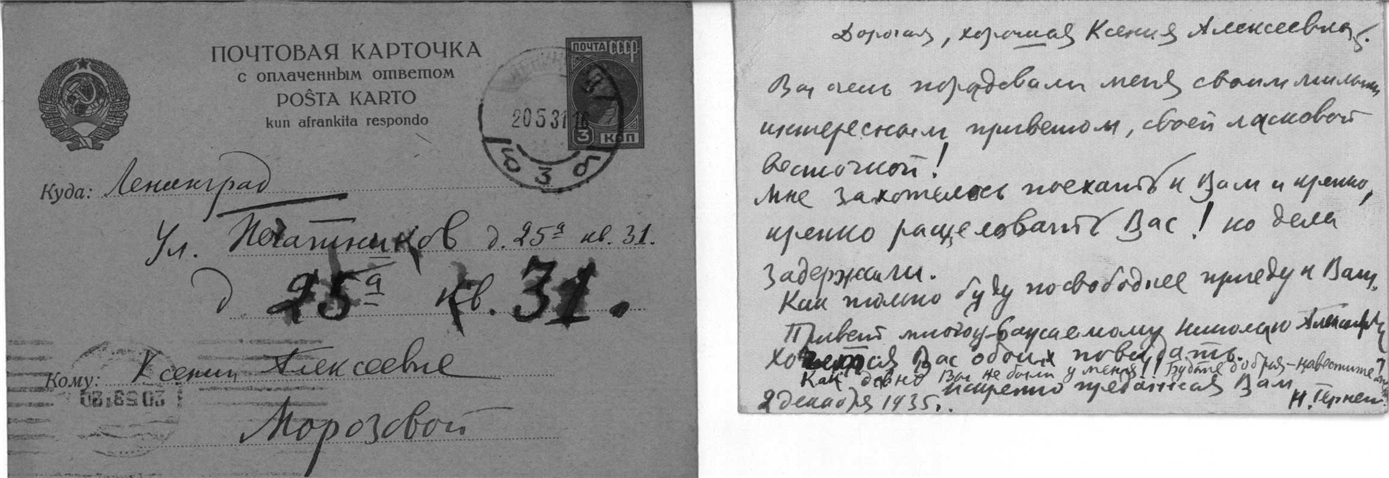 ПОЧТОВАЯ КАРТОЧКА
с оплаченным ответом
POŜTA KARTO
kun afrankita respondo
ПОЧТА СССР
3 КОП
20 5 31 16
Куда: Ленинград
Ул. д. 25а кв. 31.
д 25а кв. 31.
Кому: Ксении Алексеевне
Морозовой
Дорогая, хорошая Ксения Алексеевна.
Вы очень порадовали меня своим милым
интересным приветом, своей ласковой
весточкой!
Мне захотелось поехать к Вам и крепко,
крепко расцеловать Вас! но дела
задержали.
Как только буду посвободнее приеду к Вам.
Привет многоуважаемому Николаю
Вас обоих повидать.
Как давно Вы не были у меня! Будьте добрая - навестите!
искренно преданная Вам
2 декабря 1935. Н. Гернет